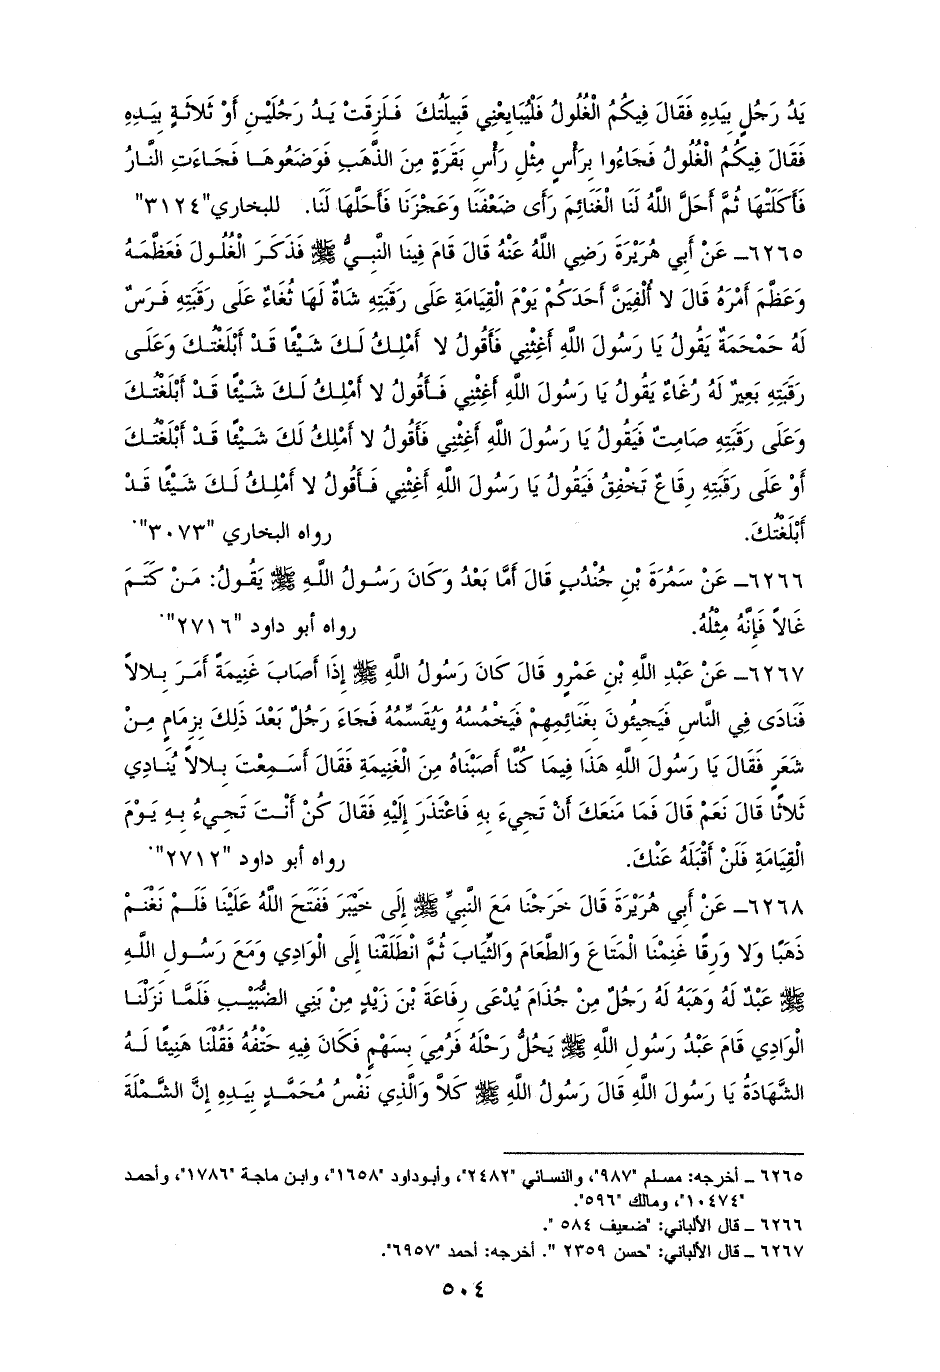 يَدُ رَجُلٍ بِيَدِهِ فَقَالَ فِيكُمُ الْغُلُولُ فَلْيُبَايِعْنِي قَبِيلَتُكَ فَلَزِقَتْ يَدُ رَجُلَيْنِ أَوْ ثَلاثَةٍ بِيَدِهِ
فَقَالَ فِيكُمُ الْغُلُولُ فَجَاءُوا بِرَأْسٍ مِثْلِ رَأْسِ بَقَرَةٍ مِنَ الذَّهَبِ فَوَضَعُوهَا فَجَاءَتِ النَّارُ
فَأَكَلَتْهَا ثُمَّ أَحَلَّ اللَّهُ لَنَا الْغَنَائِمَ رَأَى ضَعْفَنَا وَعَجْزَنَا فَأَحَلَّهَا لَنَا. للبخاري"٣١٢٤"
٦٢٦٥ــ عَنْ أَبِي هُرَيْرَةَ رَضِيَ اللَّهُ عَنْهُ قَالَ قَامَ فِينَا النَّبِيُّ ﷺ فَذَكَرَ الْغُلُولَ فَعَظَّمَهُ
وَعَظَّمَ أَمْرَهُ قَالَ لا أُلْفِيَنَّ أَحَدَكُمْ يَوْمَ الْقِيَامَةِ عَلَى رَقَبَتِهِ شَاةٌ لَهَا ثُغَاءٌ عَلَى رَقَبَتِهِ فَرَسٌ
لَهُ حَمْحَمَةٌ يَقُولُ يَا رَسُولَ اللَّهِ أَغِثْنِي فَأَقُولُ لا أَمْلِكُ لَكَ شَيْئًا قَدْ أَبْلَغْتُكَ وَعَلَى
رَقَبَتِهِ بَعِيرٌ لَهُ رُغَاءٌ يَقُولُ يَا رَسُولَ اللَّهِ أَغِثْنِي فَأَقُولُ لا أَمْلِكُ لَكَ شَيْئًا قَدْ أَبْلَغْتُكَ
وَعَلَى رَقَبَتِهِ صَامِتٌ فَيَقُولُ يَا رَسُولَ اللَّهِ أَغِثْنِي فَأَقُولُ لا أَمْلِكُ لَكَ شَيْئًا قَدْ أَبْلَغْتُكَ
أَوْ عَلَى رَقَبَتِهِ رِقَاعٌ تَخْفِقُ فَيَقُولُ يَا رَسُولَ اللَّهِ أَغِثْنِي فَأَقُولُ لا أَمْلِكُ لَكَ شَيْئًا قَدْ
أَبْلَغْتُكَ. رواه البخاري "٣٠٧٣".
٦٢٦٦ــ عَنْ سَمُرَةَ بْنِ جُنْدُبٍ قَالَ أَمَّا بَعْدُ وَكَانَ رَسُولُ اللَّهِ ﷺ يَقُولُ: مَنْ كَتَمَ
غَالاً فَإِنَّهُ مِثْلُهُ. رواه أبو داود "٢٧١٦".
٦٢٦٧ــ عَنْ عَبْدِ اللَّهِ بْنِ عَمْرٍو قَالَ كَانَ رَسُولُ اللَّهِ ﷺ إِذَا أَصَابَ غَنِيمَةً أَمَرَ بِلالاً
فَنَادَى فِي النَّاسِ فَيَجِيئُونَ بِغَنَائِمِهِمْ فَيَخْمُسُهُ وَيُقَسِّمُهُ فَجَاءَ رَجُلٌ بَعْدَ ذَلِكَ بِزِمَامٍ مِنْ
شَعَرٍ فَقَالَ يَا رَسُولَ اللَّهِ هَذَا فِيمَا كُنَّا أَصَبْنَاهُ مِنَ الْغَنِيمَةِ فَقَالَ أَسَمِعْتَ بِلالاً يُنَادِي
ثَلاثًا قَالَ نَعَمْ قَالَ فَمَا مَنَعَكَ أَنْ تَجِيءَ بِهِ فَاعْتَذَرَ إِلَيْهِ فَقَالَ كُنْ أَنْتَ تَجِيءُ بِهِ يَوْمَ
الْقِيَامَةِ فَلَنْ أَقْبَلَهُ عَنْكَ. رواه أبو داود "٢٧١٢".
٦٢٦٨ــ عَنْ أَبِي هُرَيْرَةَ قَالَ خَرَجْنَا مَعَ النَّبِيِّ ﷺ إِلَى خَيْبَرَ فَفَتَحَ اللَّهُ عَلَيْنَا فَلَمْ نَغْنَمْ
ذَهَبًا وَلا وَرِقًا غَنِمْنَا الْمَتَاعَ وَالطَّعَامَ وَالثِّيَابَ ثُمَّ انْطَلَقْنَا إِلَى الْوَادِي وَمَعَ رَسُولِ اللَّهِ
ﷺ عَبْدٌ لَهُ وَهَبَهُ لَهُ رَجُلٌ مِنْ جُذَامَ يُدْعَى رِفَاعَةَ بْنَ زَيْدٍ مِنْ بَنِي الضُّبَيْبِ فَلَمَّا نَزَلْنَا
الْوَادِي قَامَ عَبْدُ رَسُولِ اللَّهِ ﷺ يَحُلُّ رَحْلَهُ فَرُمِيَ بِسَهْمٍ فَكَانَ فِيهِ حَتْفُهُ فَقُلْنَا هَنِيئًا لَهُ
الشَّهَادَةُ يَا رَسُولَ اللَّهِ قَالَ رَسُولُ اللَّهِ ﷺ كَلاَّ وَالَّذِي نَفْسُ مُحَمَّدٍ بِيَدِهِ إِنَّ الشَّمْلَةَ
٦٢٦٥ ــ أخرجه: مسلم "٩٨٧"، والنسائي "٢٤٨٢"، وأبوداود "١٦٥٨"، وابن ماجة "١٧٨٦"، وأحمد
"١٠٤٧٤"، ومالك "٥٩٦".
٦٢٦٦ ــ قال الألباني: "ضعيف ٥٨٤ ".
٦٢٦٧ ــ قال الألباني: "حسن ٢٣٥٩ ". أخرجه: أحمد "٦٩٥٧".
٥٠٤